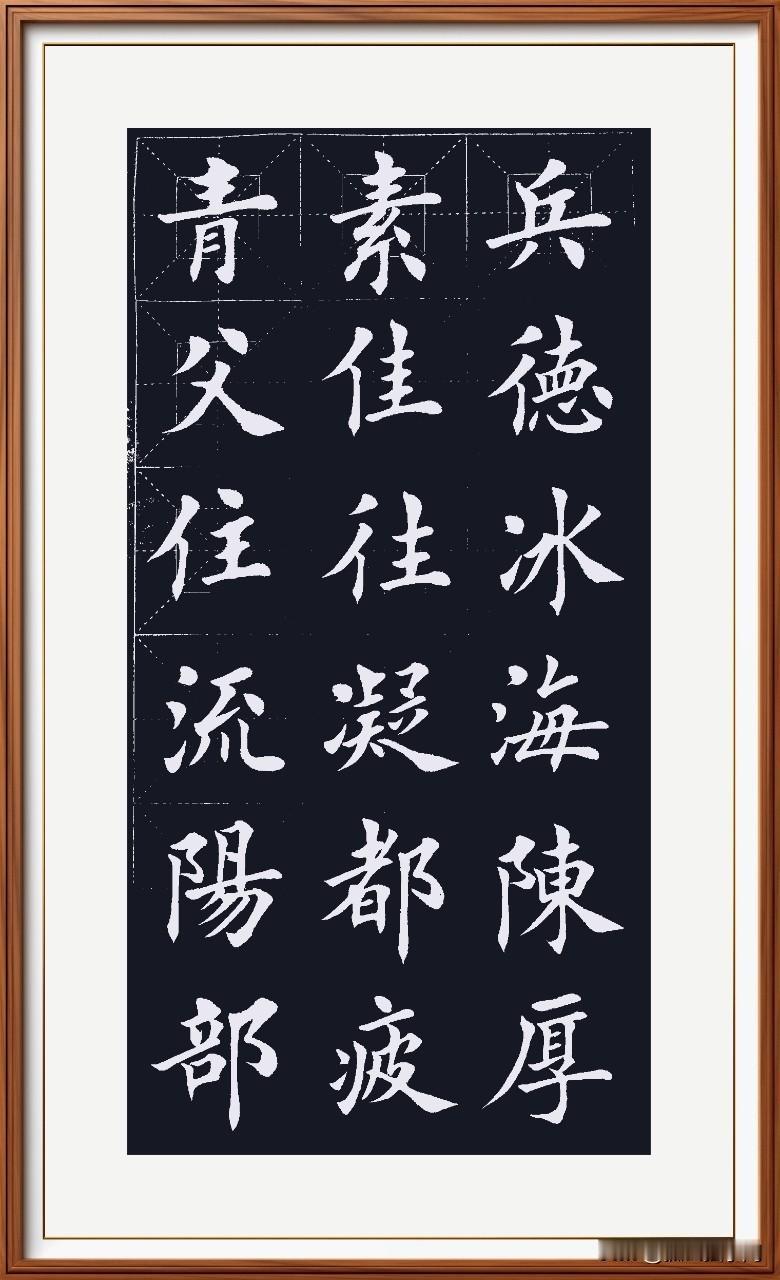 兵德冰海陳厚
素佳往凝都疲
青父住流陽部